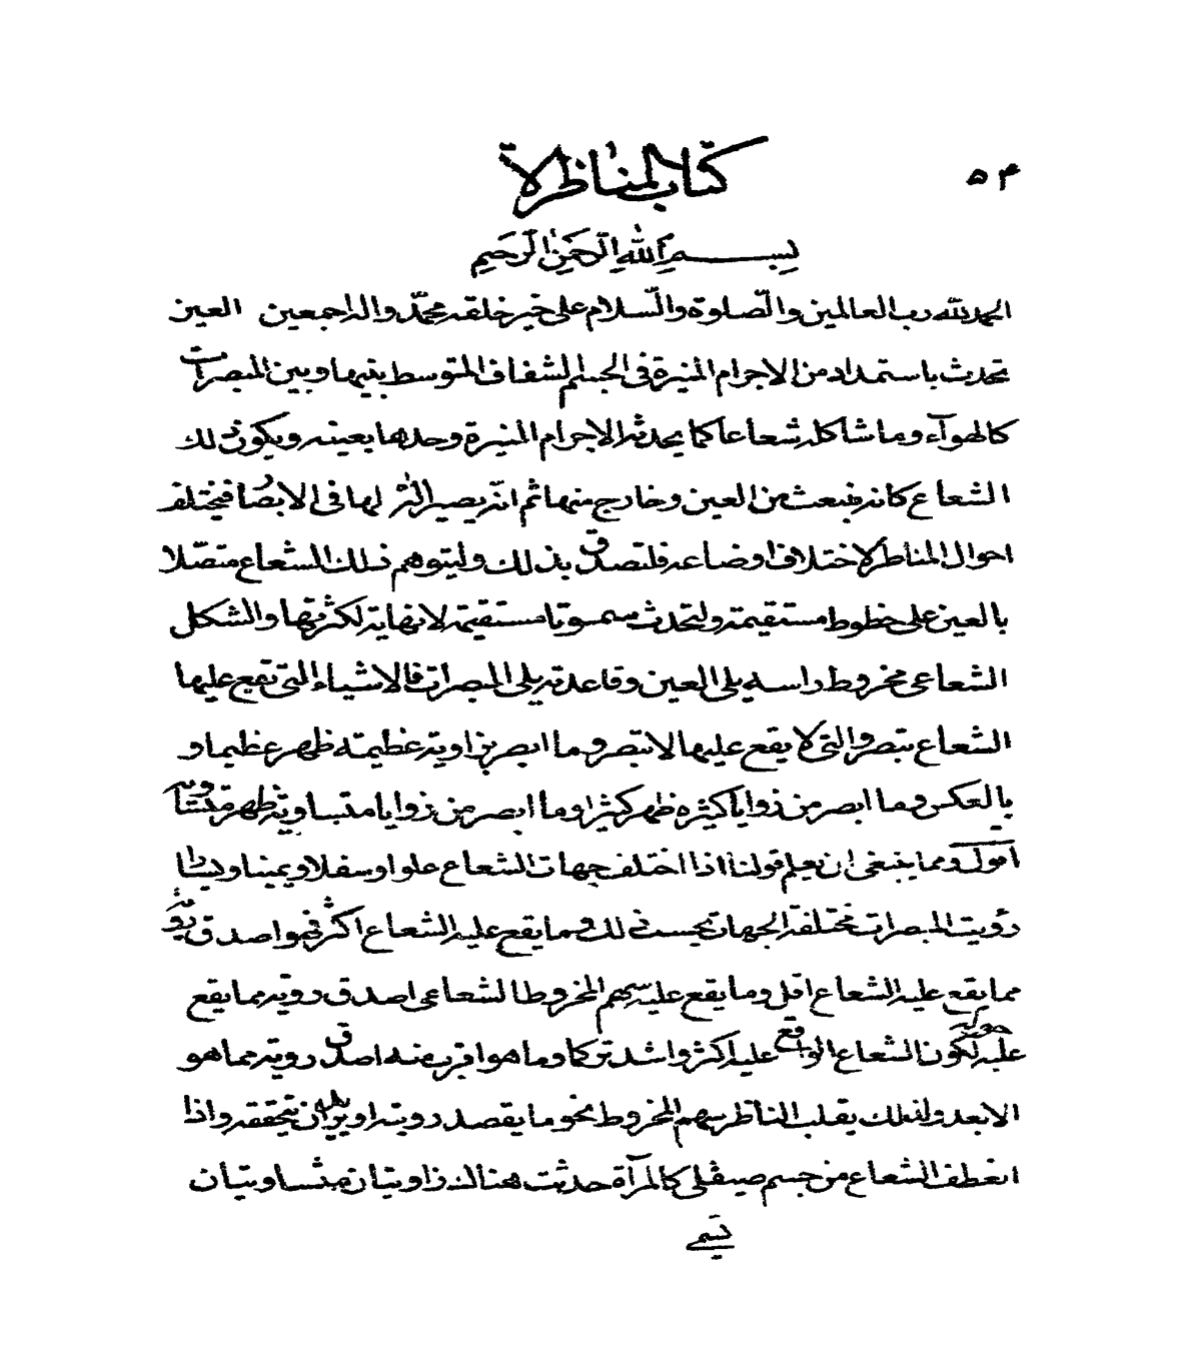 ۵۴
كتاب المناظرة
بسم الله الرحمن الرحيم
الحمد لله رب العالمين والصلوة والسلام على خير خلقه محمد واله اجمعين العين
تحدث باستمداد من الاجرام المنيرة فى الجسم الشفاف المتوسط بينها وبين المبصرات
كالهوآء وما شاكله شعاعا كما يحدثه الاجرام المنيرة وحدها بعينه ويكون ذلك
الشعاع كانه منبعث من العين وخارج منها ثم انه يصير آلة لها فى الابصار فيختلف
احوال المناظر لاختلاف اوضاعه فلتصدق بذلك وليتوهم ذلك الشعاع متصلا
بالعين على خطوط مستقيمة ولتحدث سموتا مستقيمة لا نهاية لكثرتها والشكل
الشعاعى مخروط راسه يلى العين وقاعدته يلى المبصرات فالاشياء التى تقع عليها
الشعاع تبصر والتى لا يقع عليها لا تبصر وما ابصر بزاوية عظيمة ظهر عظيما و
بالعكس وما ابصر من زوايا كثيره ظهر كثيرا وما ابصر من زوايا متساوية ظهر متساوية
اقول ومما ينبغى ان نعلم قولنا اذا اختلف جهات الشعاع علوا وسفلا ويمينا ويسارا
رؤيت المبصرات مختلفة الجهات بحسب ذلك وما يقع عليه الشعاع اكثر فهو اصدق رؤية
مما يقع عليه الشعاع اقل وما يقع عليه سهم المخروط الشعاعى اصدق روية مما يقع
حوله
عليه لكون الشعاع الواقع عليه اكثر واشد تركما وما هو اقرب منه اصدق روية مما هو
الابعد ولذلك يقلب الناظر سهم المخروط نحو ما يقصد رويته او يريد ان يتحققه واذا
انعطف الشعاع من جسم صيقلى كالمرآة حدثت هنالك زاويتان متساويتان
تسمى